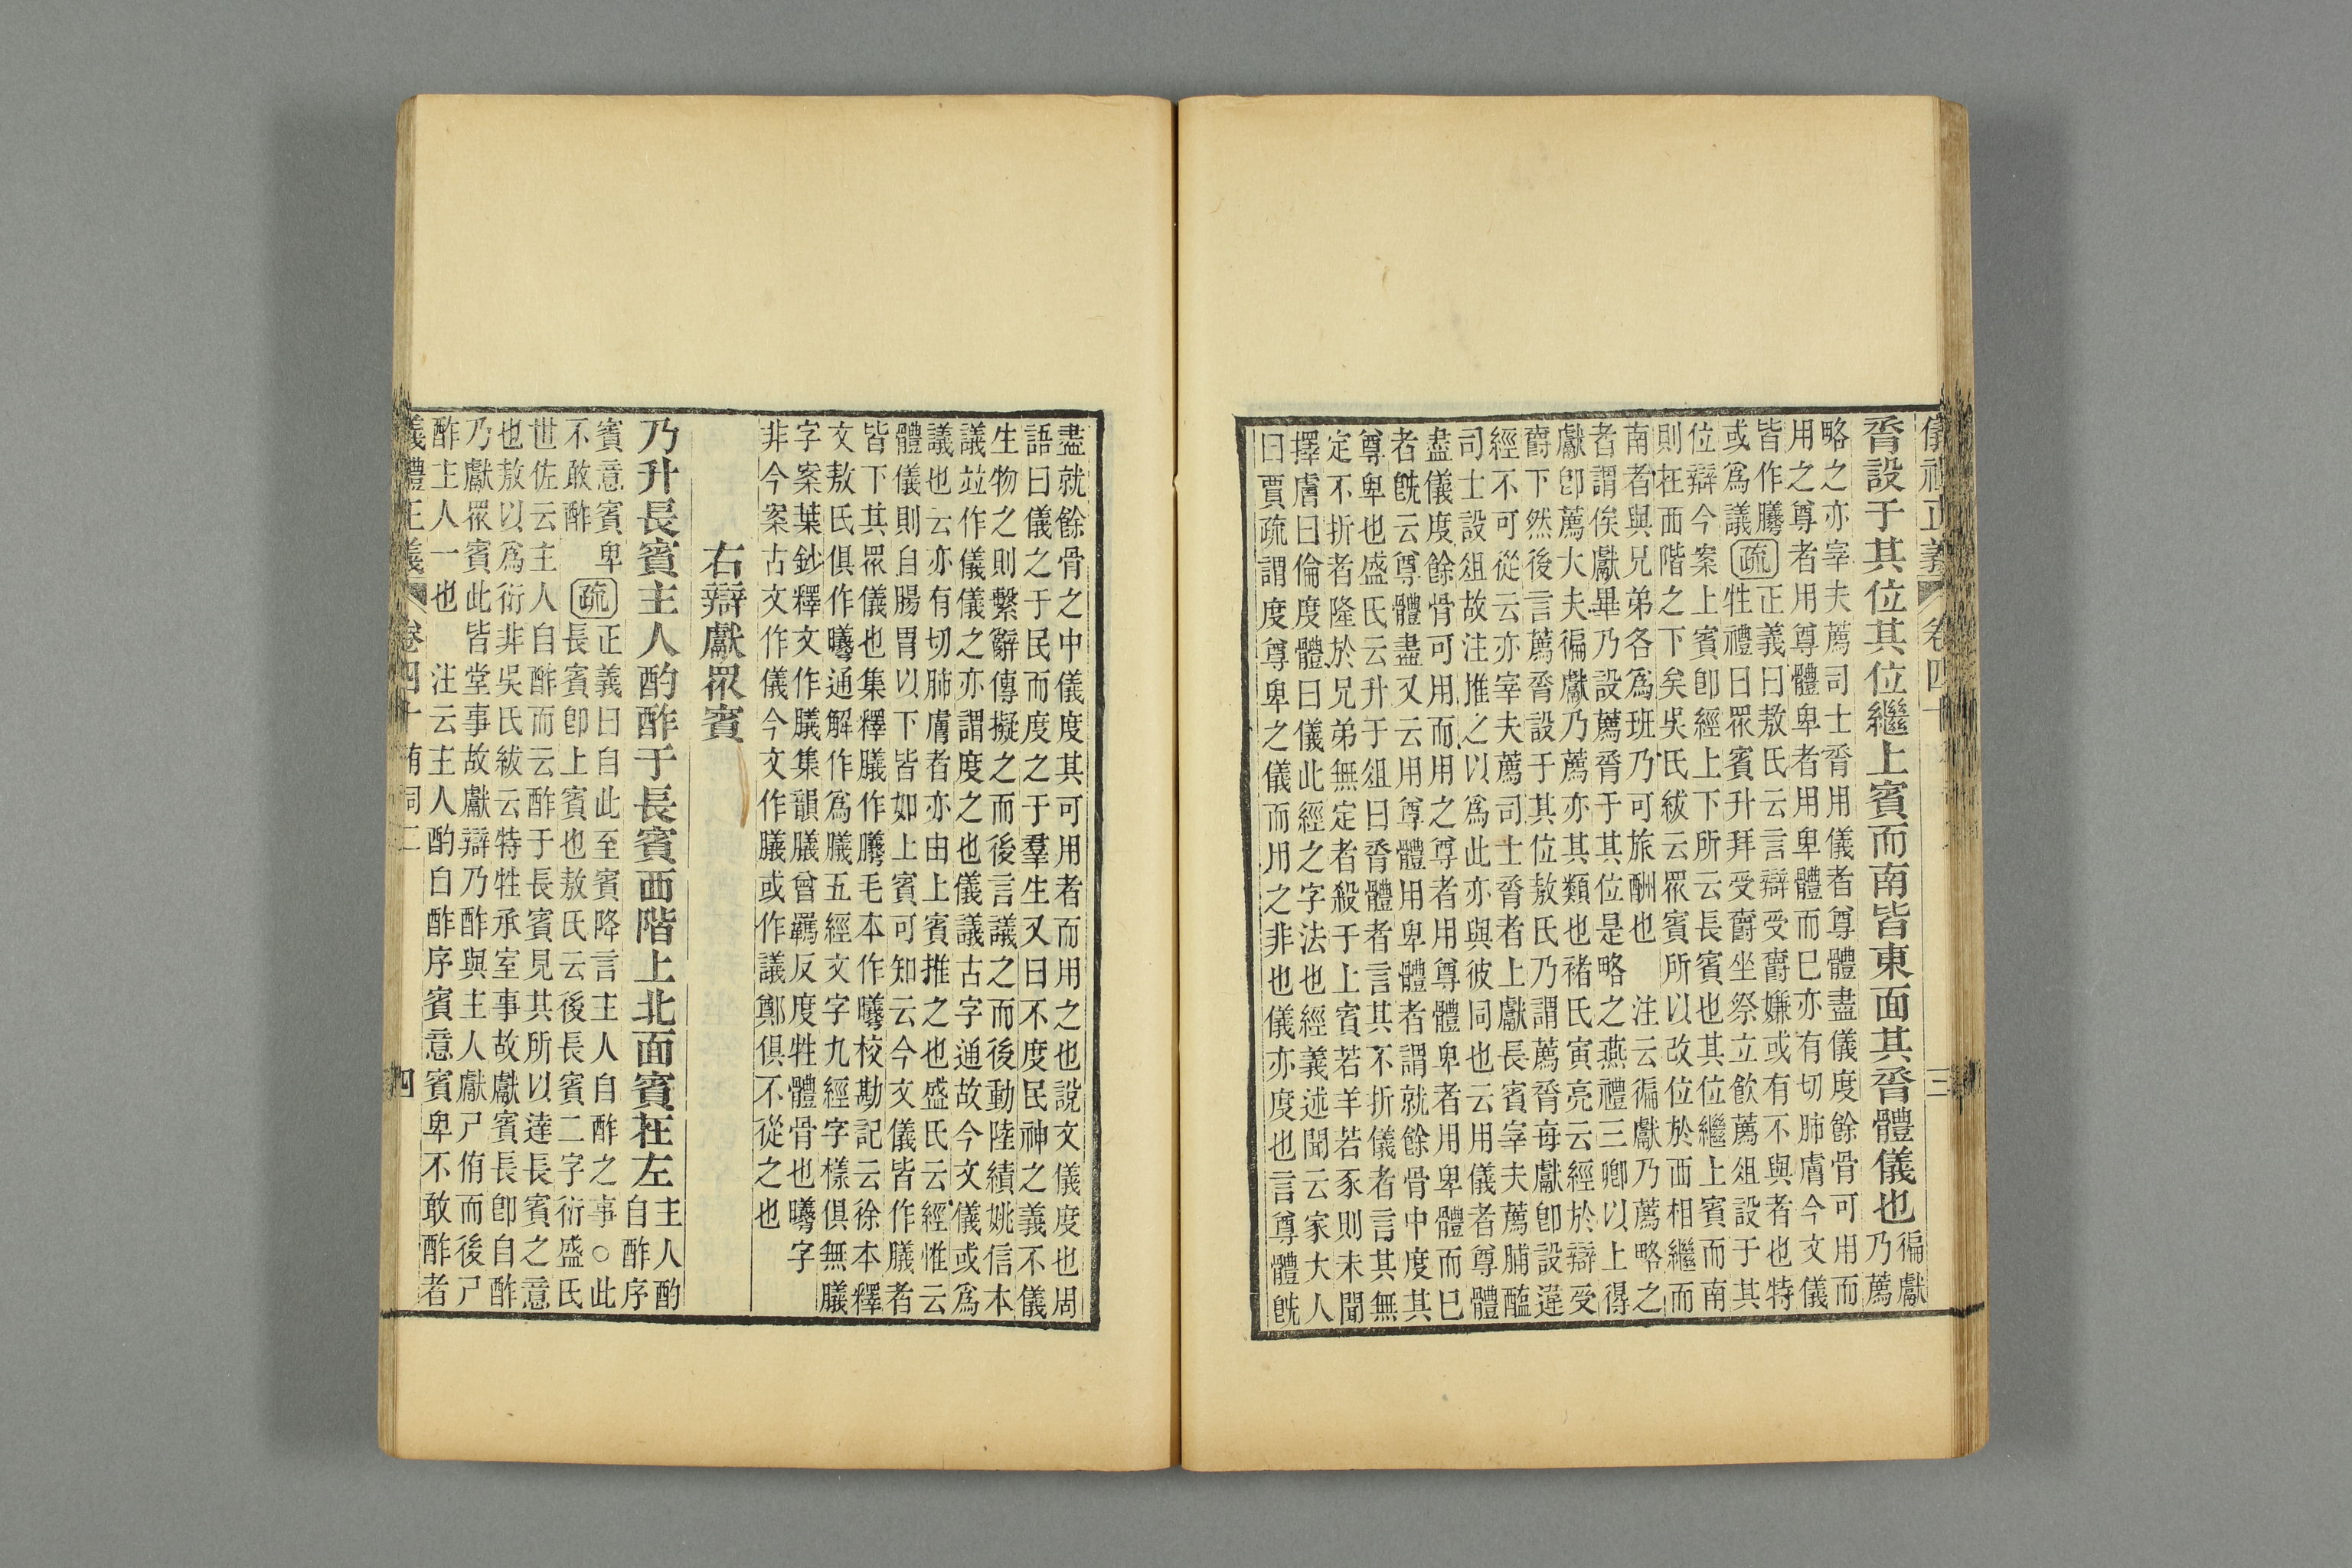 儀禮正義 卷四十 三
脀設于其位其位繼上賓而南皆東面其脀體儀也徧獻
乃薦
略之亦宰夫薦司士脀用儀者尊體盡儀度餘骨可用而
用之尊者用尊體卑者用卑體而已亦有切肺膚今文儀
皆作
或爲議
疏
正義曰敖氏云言辯受爵嫌或有不與者也特
牲禮曰眾賓升拜受爵坐祭立飲薦俎設于其
位辯今案上賓卽經上下所云長賓也其位繼上賓而南
則在西階之下矣吳氏紱云眾賓所以改位於西相繼而
南者與兄弟各爲班乃可旅酬也　注云徧獻乃薦略之
者謂俟獻畢乃設薦脀于其位是略之燕禮三卿以上得
獻卽薦大夫徧獻乃薦亦其類也褚氏寅亮云經於辯受
爵下然後言薦脀設于其位敖氏乃謂薦脀每獻卽設違
經不可從云亦宰夫薦司士脀者上獻長賓宰夫薦脯醢
司士設俎故注推之以爲此亦與彼同也云用儀者尊體
盡儀度餘骨可用而用之尊者用尊體卑者用卑體而已
者旣云尊體盡又云用尊體用卑體者謂就餘骨中度其
尊卑也盛氏云升于俎曰脀體者言其不折儀者言其無
定不折者隆於兄弟無定者殺于上賓若羊若豕則未聞
擇膚曰倫度體曰儀此經之字法也經義述聞云家大人
曰賈疏謂度尊卑之儀而用之非也儀亦度也言尊體旣
盡就餘骨之中儀度其可用者而用之也說文儀度也周
語曰儀之于民而度之于羣生又曰不度民神之義不儀
生物之則繫辭傳擬之而後言議之而後動陸績姚信本
議竝作儀儀之亦謂度之也儀議古字通故今文儀或爲
議也云亦有切肺膚者亦由上賓推之也盛氏云經惟云
體儀則自腸胃以下皆如上賓可知云今文儀皆作者
皆下其眾儀也集釋作毛本作曦校勘記云徐本釋
文敖氏俱作曦通解作爲五經文字九經字樣俱無
字案葉鈔釋文作集韻曾羈反度牲體骨也曦字
非今案古文作儀今文作或作議鄭俱不從之也
右辯獻眾賓
乃升長賓主人酌酢于長賓西階上北面賓在左主人酌
自酢序
賓意賓卑
不敢酢
疏
正義曰自此至賓降言主人自酢之事○此
長賓卽上賓也敖氏云後長賓二字衍盛氏
世佐云主人自酢而云酢于長賓見其所以達長賓之意
也敖以爲衍非吳氏紱云特牲承室事故獻賓長卽自酢
乃獻眾賓此皆堂事故獻辯乃酢與主人獻尸侑而後尸
酢主人一也　注云主人酌自酢序賓意賓卑不敢酢者
儀禮正義 卷四十 有司二 四